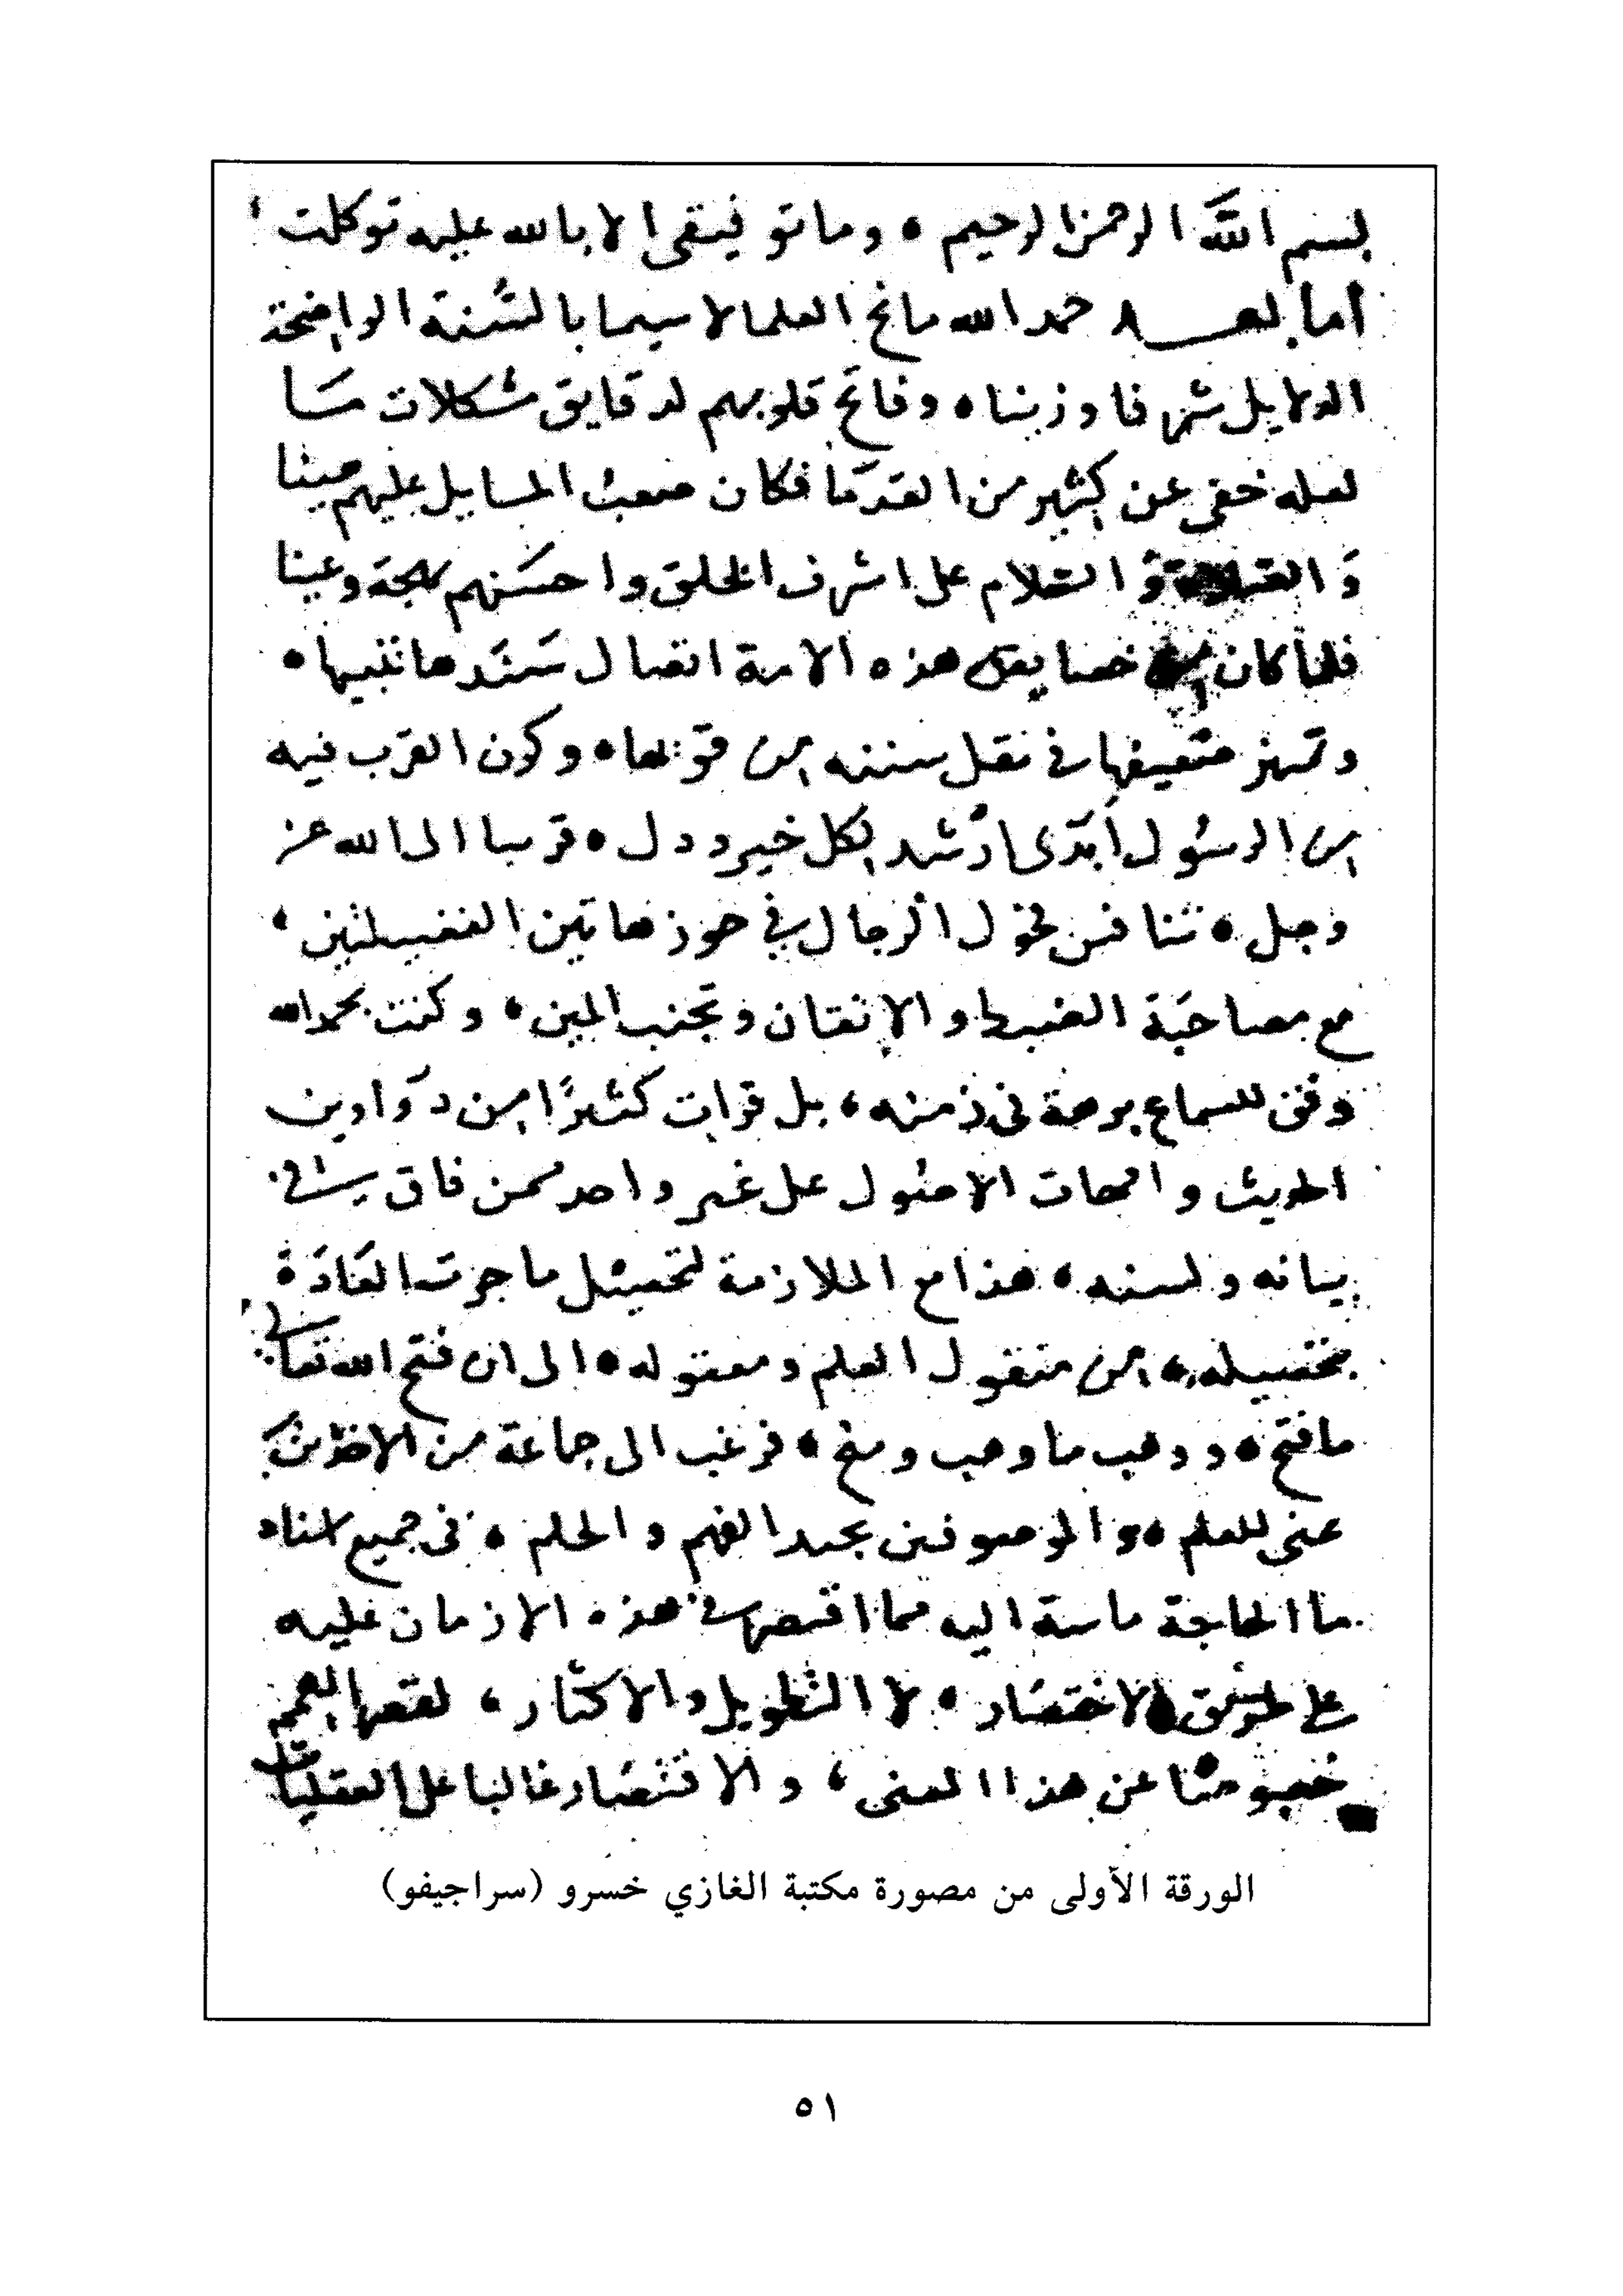 بسم الله الرحمن الرحيم ٥ وما توفيقى الا بالله عليه توكلت
أما بعد حمد الله مانح العلما لا سيما بالسُّنة الواضحة
الدلايل شرفا وزينا ٥ وفاتح قلوبهم لدقايق مشكلات مسا
لعله خفى عن كثير من القدما فكان صعب المسايل عليهم هينا
وَالصلاة وَالسلام على اشرف الخلق واحسَنهم بهجة وعينا
فلما كان من خصايص هذه الامة اتصال سَنَدها بنبيها ٥
وتميز ضعيفها فى نقل سننه من قويها ٥ وكون القرب فيه
من الرسُول الذى ارشد لكل خير ودل ٥ قربا الى الله عز
وجل ٥ تنافس فحول الرجال فى حوز هاتين الفضيلتين ،
مع مصاحَبَة الضبط والإتقان وتجنب المين ، وكنت بحمد الله
ممن وفق للسماع برهة فى زمنه ، بل قرات كثيرًا من دَوَاوين
الحديث وامهات الاصُول على غير واحد ممن فاق فى
بيانه ولسنه ، هذا مع الملازمة لتحصيل ما جرت العَادَة
بتحصيله ، من منقول العلم ومعقوله ٥ الى ان فتح الله تعالى
ما فتح ٥ ووهب ما وهب ومنح ، فرغب الى جماعة من الاخوان
عنى للعلم ٥ والموصوفين بجيد الفهم والحلم ٥ فى جميع
ما الحاجة ماسة اليه مما اقتصر فى هذه الازمان عليه
على طريق الاختصَار ٥ لا التطويل والاكثار ، لقصر الهمم
خصوصًا عن هذا المعنى ، والاقتصَار غالبا على العقليات
الورقة الأولى من مصورة مكتبة الغازي خسرو (سراجيفو)
٥١